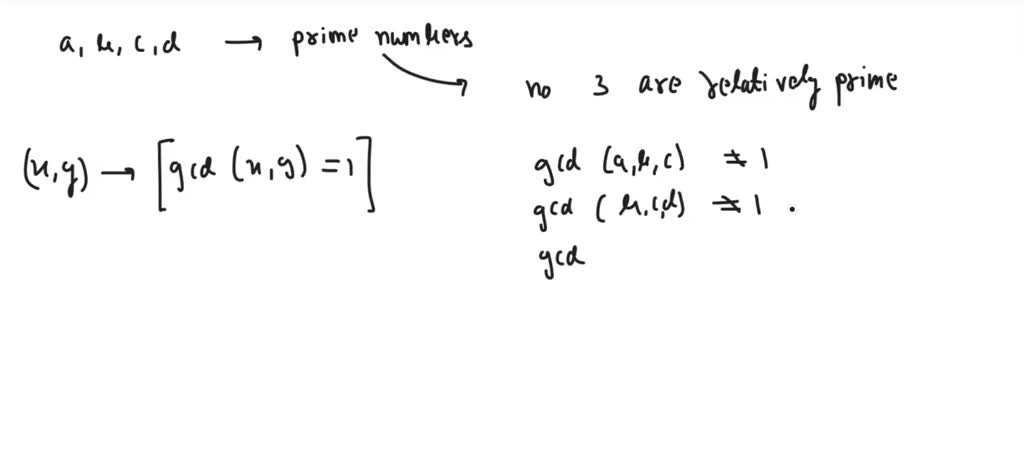 a, b, c, d → prime numbers
no 3 are relatively prime
(x,y) → [gcd (x,y) = 1]
gcd (a,b,c) ≠ 1
gcd (b,c,d) ≠ 1 .
gcd